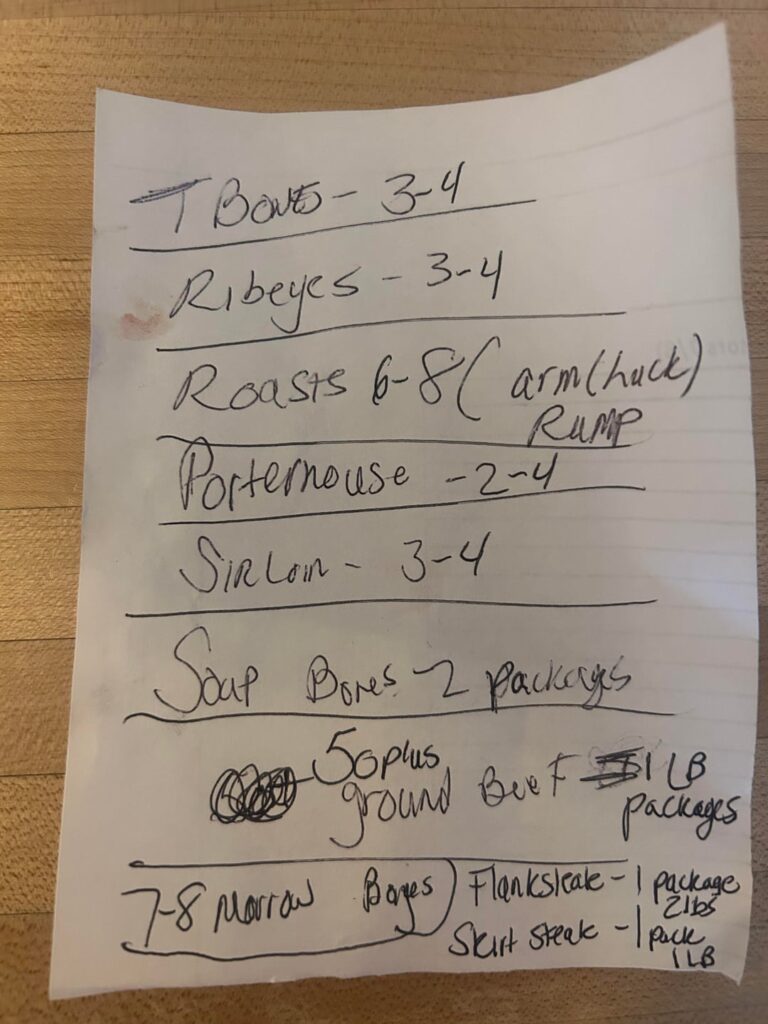 T Bones - 3-4
Ribeyes - 3-4
Roasts 6-8 ( arm (huck)
Rump
Porterhouse - 2-4
Sirloin - 3-4
Soup Bones - 2 packages
50 plus
ground Beef 1 LB
packages
7-8 Marrow Bones
Flanksteak - 1 package
2lbs
Skirt steak - 1 pack
1 LB